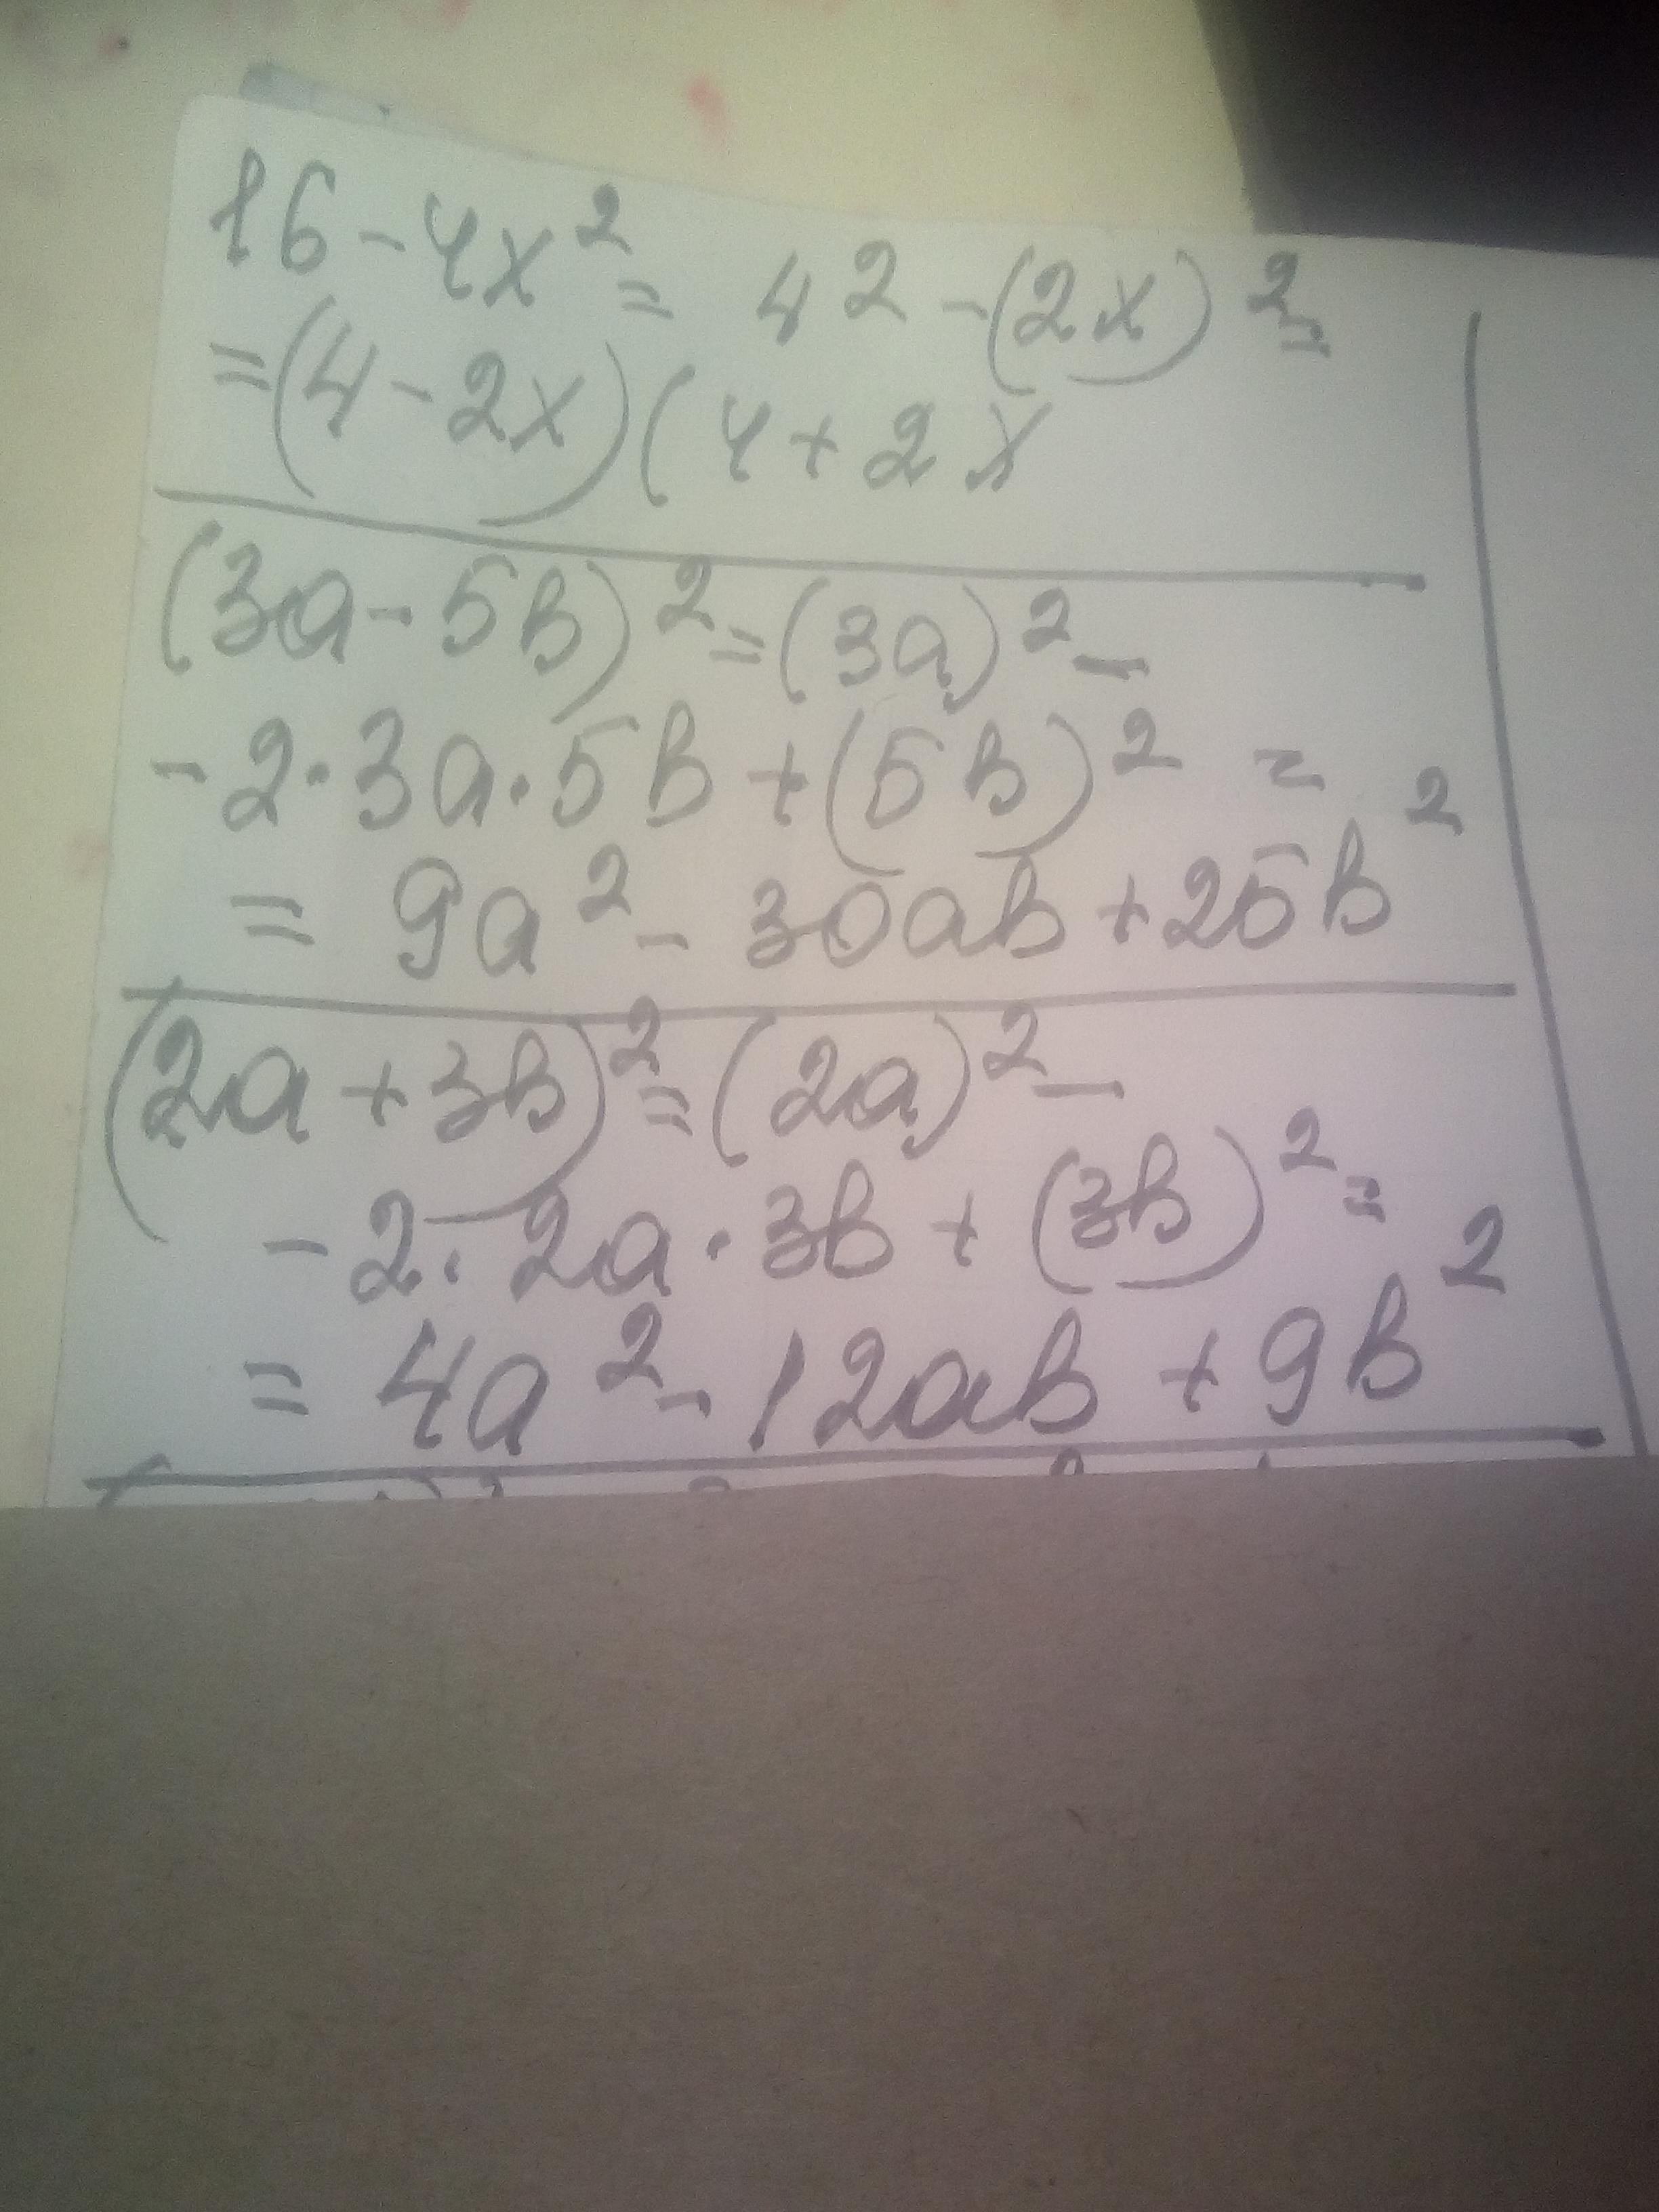 16-4x²= 4²-(2x)²=
=(4-2x)(4+2x
(3a-5b)²=(3a)²-
-2·3a·5b+(5b)²=
= 9a²-30ab+25b²
(2a+3b)²=(2a)²-
-2·2a·3b+(3b)²=
= 4a²-12ab+9b²